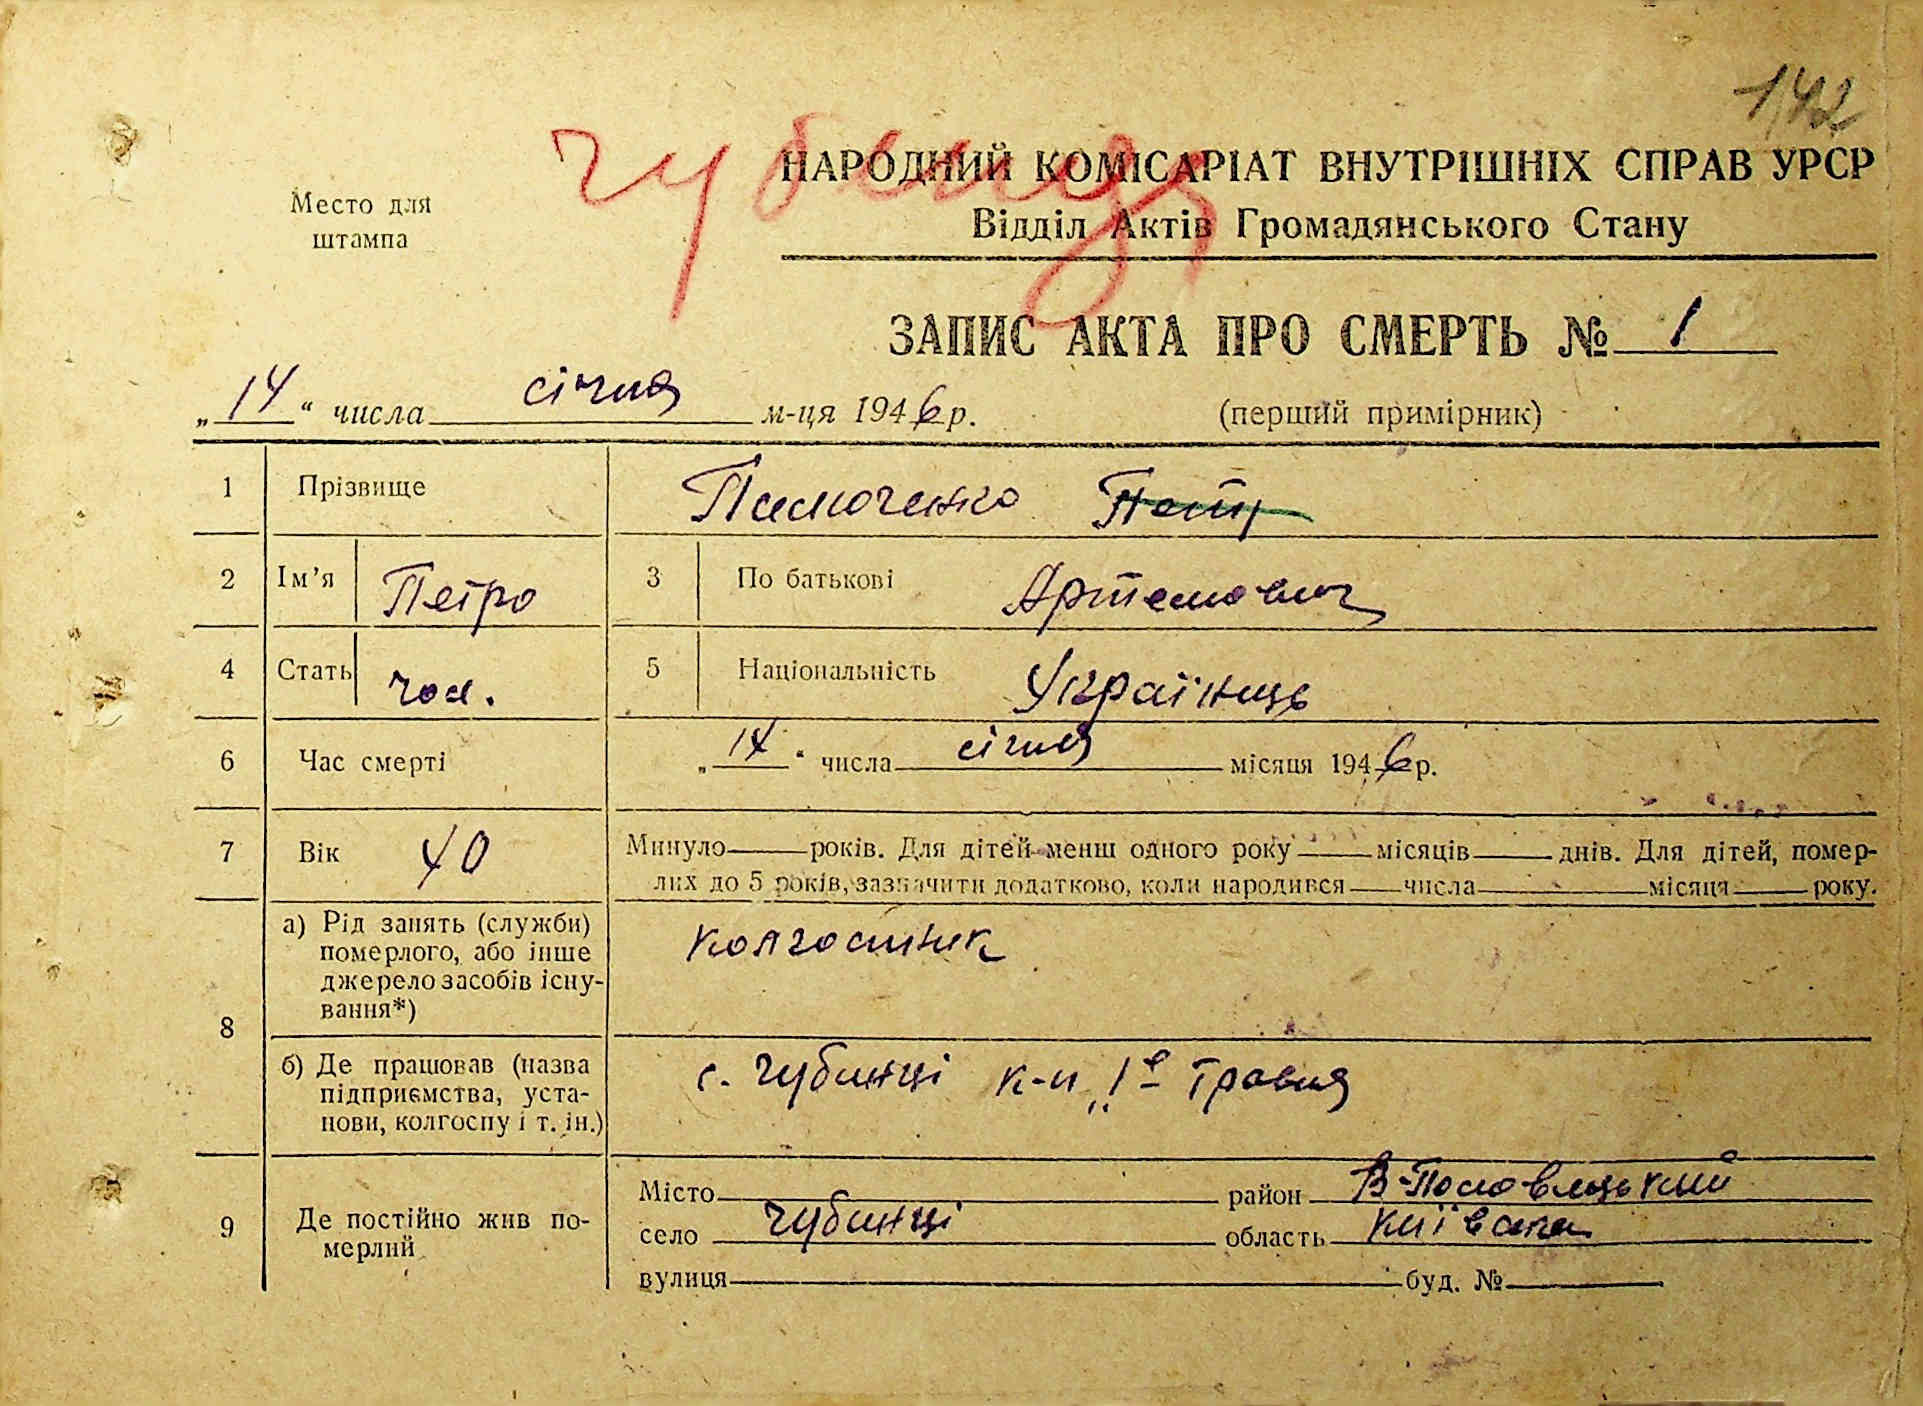 142
Чубинці
НАРОДНИЙ КОМІСАРІАТ ВНУТРІШНІХ СПРАВ УРСР
Место для
штампа
Відділ Актів Громадянського Стану
ЗАПИС АКТА ПРО СМЕРТЬ № 1
„14“ числа січня м-ця 1946 р. (перший примірник)
1 Прізвище Петр
2 Ім’я Петро 3 По батькові Артемович
4 Стать чол. 5 Національність Українець
6 Час смерті „14“ числа січня місяця 1946 р.
7 Вік 40 Минуло років. Для дітей менш одного року місяців днів. Для дітей, помер-
лих до 5 років, зазначити додатково, коли народився числа місяця року.
8 а) Рід занять (служби)
померлого, або інше
джерело засобів існу-
вання*)
колгоспник
б) Де працював (назва
підприємства, уста-
нови, колгоспу і т. ін.)
с. Чубинці к-п „1е Травня
9 Де постійно жив по-
мерлий
Місто район В-Половецький
село Чубинці область Київська
вулиця буд. №